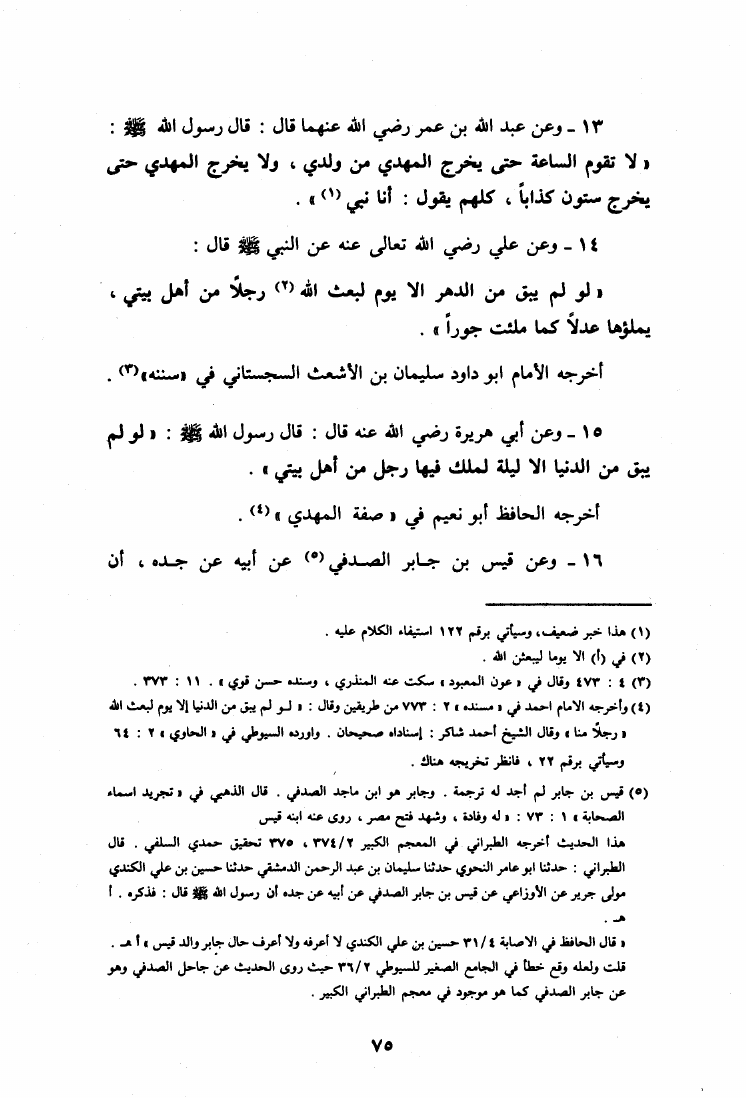 ١٣ - وعن عبد الله بن عمر رضي الله عنهما قال : قال رسول الله ﷺ :
« لا تقوم الساعة حتى يخرج المهدي من ولدي ، ولا يخرج المهدي حتى
يخرج ستون كذاباً ، كلهم يقول : أنا نبي (١) » .
١٤ - وعن علي رضي الله تعالى عنه عن النبي ﷺ قال :
« لو لم يبق من الدهر الا يوم لبعث الله (٢) رجلاً من أهل بيتي ،
يملؤها عدلاً كما ملئت جوراً » .
أخرجه الأمام ابو داود سليمان بن الأشعث السجستاني في «سننه» (٣) .
١٥ - وعن أبي هريرة رضي الله عنه قال : قال رسول الله ﷺ : « لو لم
يبق من الدنيا الا ليلة لملك فيها رجل من أهل بيتي » .
أخرجه الحافظ أبو نعيم في « صفة المهدي » (٤) .
١٦ - وعن قيس بن جابر الصدفي (٥) عن أبيه عن جده ، أن
(١) هذا خبر ضعيف، وسيأتي برقم ١٢٢ استيفاء الكلام عليه .
(٢) في (أ) الا يوما ليبعثن الله .
(٣) ٤ : ٤٧٣ وقال في « عون المعبود » سكت عنه المنذري ، وسنده حسن قوي » . ١١ : ٣٧٣ .
(٤) وأخرجه الامام احمد في « مسنده » ٢ : ٧٧٣ من طريقين وقال : « لو لم يبق من الدنيا إلا يوم لبعث الله
« رجلاً منا » وقال الشيخ أحمد شاكر : إسناداه صحيحان . واورده السيوطي في « الحاوي » ٢ : ٦٤
وسيأتي برقم ٢٢ ، فانظر تخريجه هناك .
(٥) قيس بن جابر لم أجد له ترجمة . وجابر هو ابن ماجد الصدفي . قال الذهبي في « تجريد اسماء
الصحابة » ١ : ٧٣ : « له وفادة ، وشهد فتح مصر ، روى عنه ابنه قيس
هذا الحديث أخرجه الطبراني في المعجم الكبير ٣٧٤/٢ ، ٣٧٥ تحقيق حمدي السلفي . قال
الطبراني : حدثنا ابو عامر النحوي حدثنا سليمان بن عبد الرحمن الدمشقي حدثنا حسين بن علي الكندي
مولى جرير عن الأوزاعي عن قيس بن جابر الصدفي عن أبيه عن جده أن رسول الله ﷺ قال : فذكره . أ
هـ .
« قال الحافظ في الاصابة ٣١/٤ حسين بن علي الكندي لا أعرفه ولا أعرف حال جابر والد قيس » أ هـ .
قلت ولعله وقع خطأ في الجامع الصغير للسيوطي ٣٦/٢ حيث روى الحديث عن جاحل الصدفي وهو
عن جابر الصدفي كما هو موجود في معجم الطبراني الكبير .
٧٥